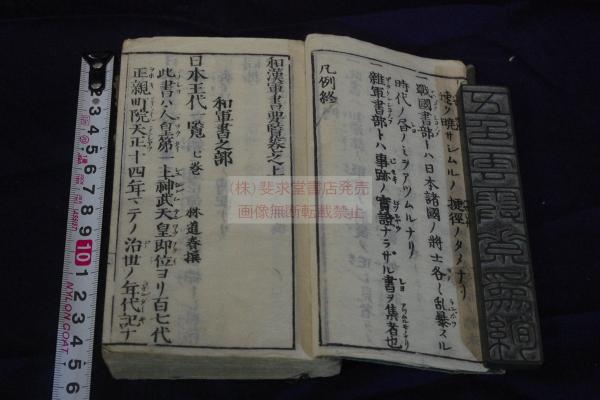 速ニ暁サシムルノ捷徑ノタメナリ
一戰國書部トハ日本諸國ノ將士各〻乱暴スル
時代ノ昏ノミヲアツムルナリ
一雜軍書部トハ事跡ノ實證ナラサル書ヲ集者也
凡例終
和漢軍書要覧巻之上
和軍書之部
日本王代一覧 七巻 林道春撰
此書ハ人皇第一主神武天皇即位ヨリ百七代
正親町院天正十四年マテノ治世ノ年代記ナ
(株)斐求堂書店発売
画像無断転載禁止
2 3 4 5 6 7 8 9 10 1 2 3 4 5 6
NYLON COAT